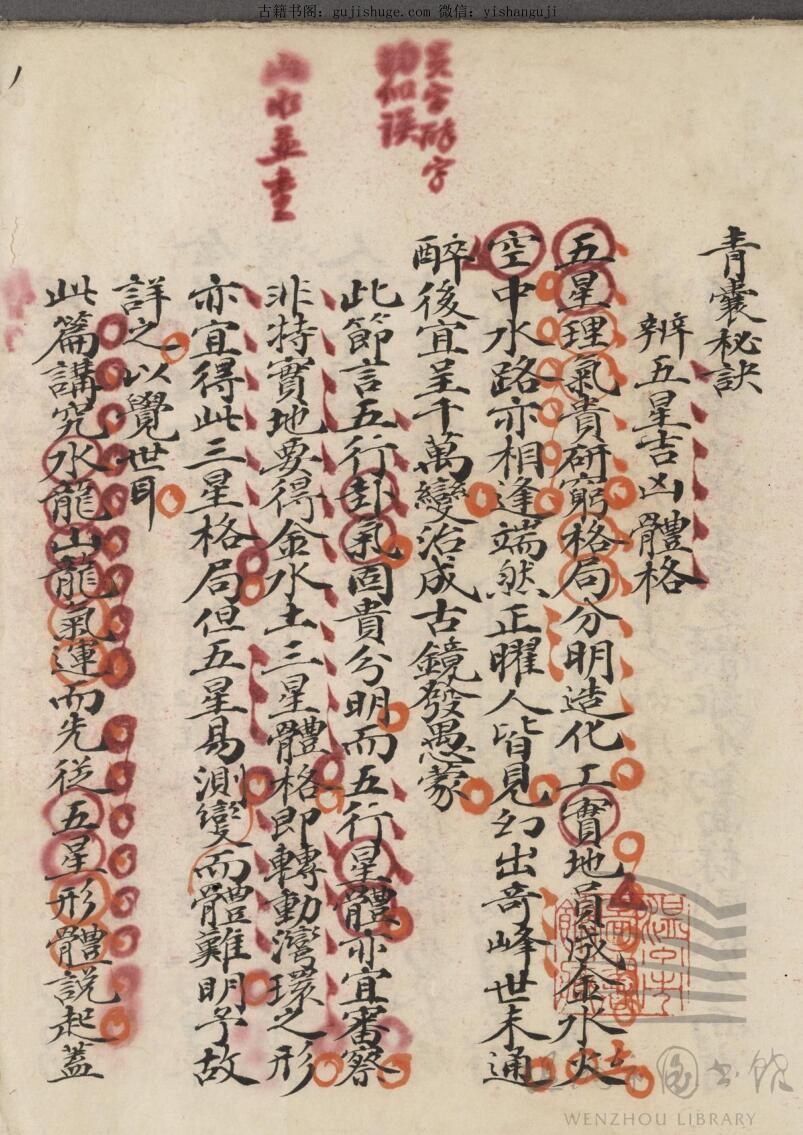 古籍书阁：gujishuge.com 微信：yishanguji
青囊秘訣
辨五星吉凶體格
五星理氣貴研窮格局分明造化工實地員成金水火
空中水路亦相逢端然正曜人皆見幻出奇峰世未通
醉後宜呈千萬變治成古鏡發愚蒙
此節言五行卦氣固貴分明而五行星體亦宜審察
非特實地要得金水土三星體格即轉動灣環之形
亦宜得此三星格局但五星易測變而體難明予故
詳之以覺世耳
此篇講究水龍山龍氣運而先從五星形體說起蓋
員字醉字
似誤
山水並重
WENZHOU LIBRARY